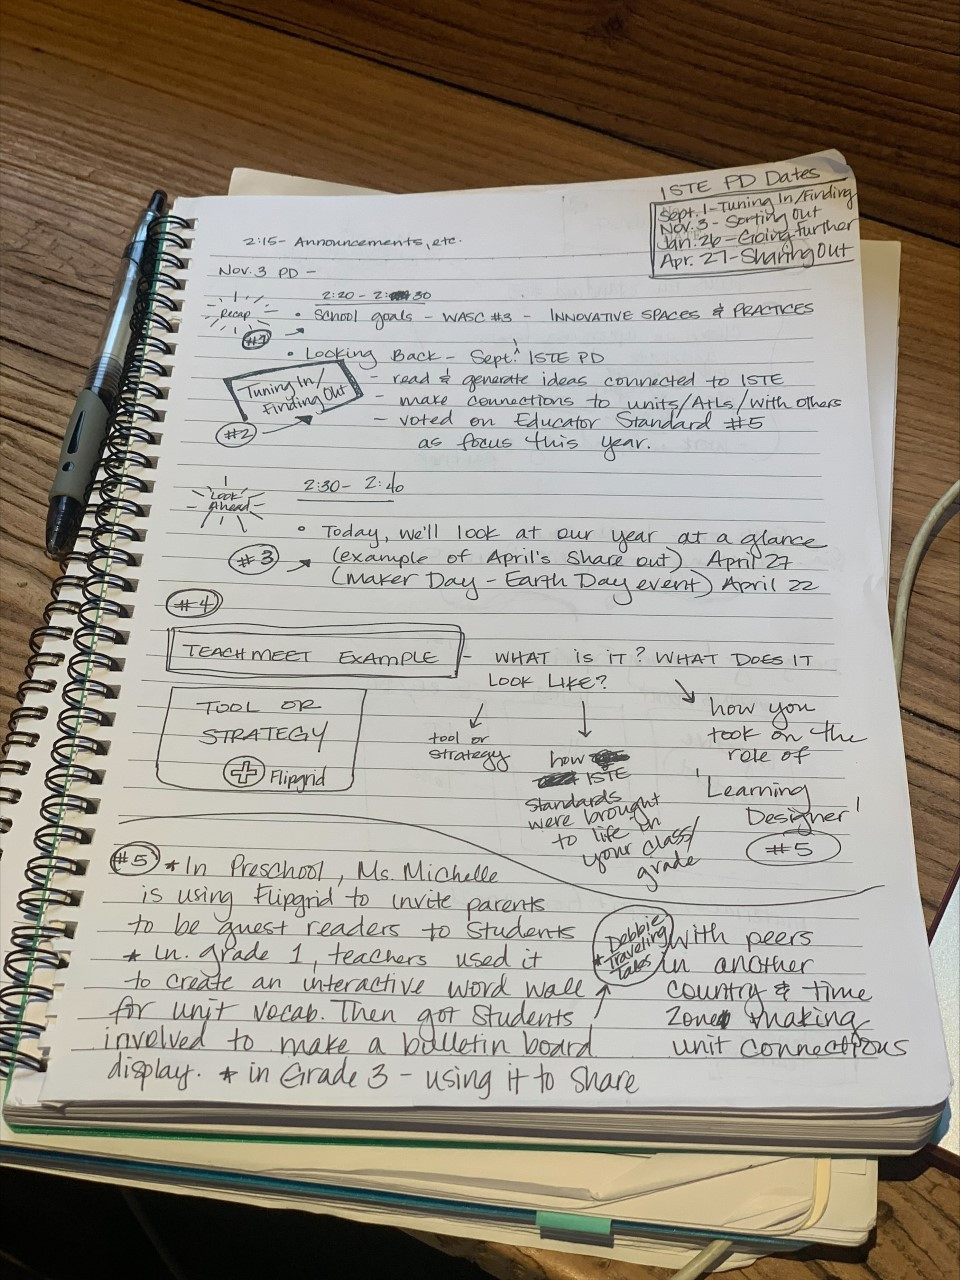 ISTE PD Dates
Sept. 1 - Tuning In/Finding
Nov. 3 - Sorting Out
Jan. 26 - Going Further
Apr. 27 - Sharing Out
2:15 - Announcements, etc.
Nov. 3 PD -
Recap
2:20 - 2:30
#1
• School goals - WASC #3 - INNOVATIVE SPACES & PRACTICES
• Looking Back - Sept. 1 ISTE PD
Tuning In/
Finding Out
#2
- read & generate ideas connected to ISTE
- make connections to units/AtLs/with others
- voted on Educator Standard #5
as focus this year.
Look
Ahead
2:30 - 2:40
#3
• Today, we'll look at our year at a glance
(example of April's Share out) April 27
(Maker Day - Earth Day event) April 22
#4
TEACHMEET EXAMPLE - WHAT IS IT? WHAT DOES IT
LOOK LIKE?
TOOL OR
STRATEGY
+ Flipgrid
tool or
strategy
how
ISTE
standards
were brought
to life in
your class/
grade
how you
took on the
role of
'Learning
Designer'
#5
#5 * In Preschool, Ms. Michelle
is using Flipgrid to invite parents
to be guest readers to students
* In grade 1, teachers used it
to create an interactive word wall
for unit vocab. Then got students
involved to make a bulletin board
display. * in Grade 3 - using it to share
Debbie
* Traveling
Tales
with peers
in another
country & time
zone making
unit connections